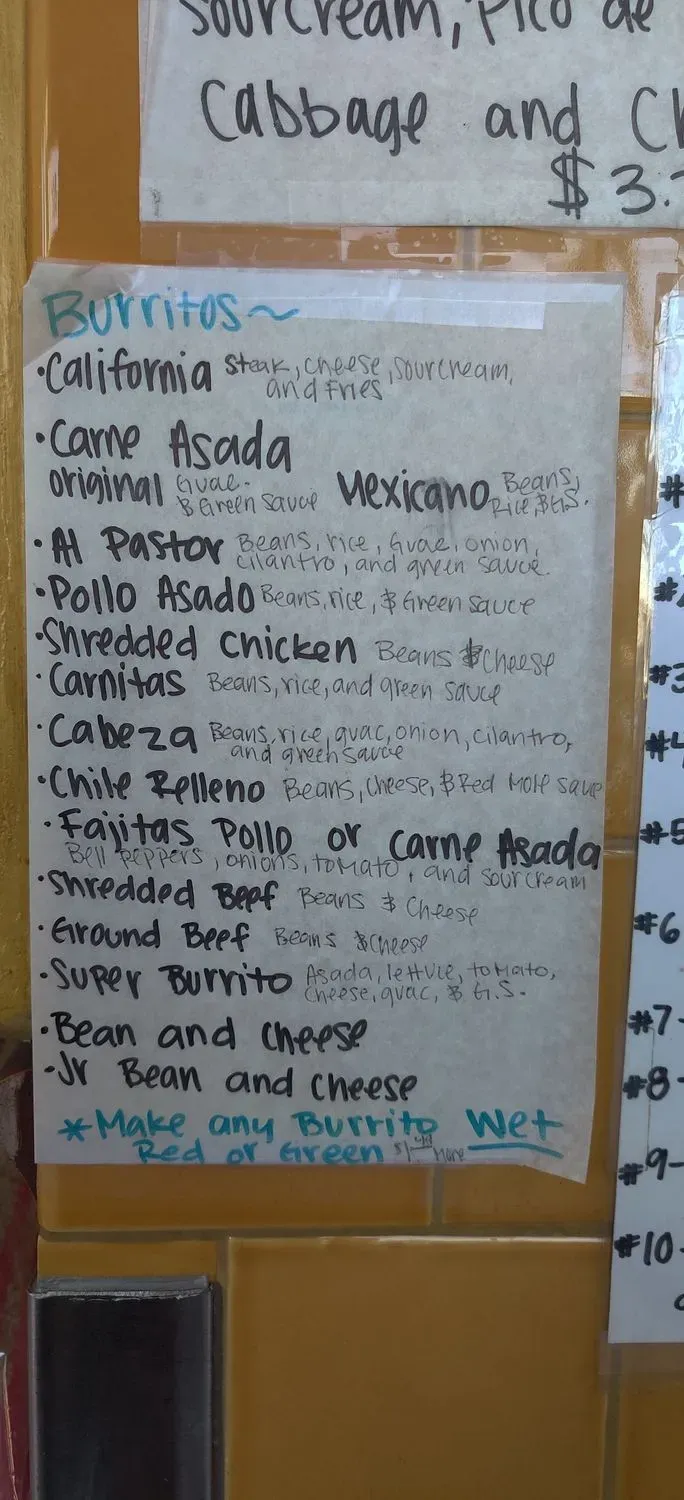 sourcream, Pico de
Cabbage and
$3.
Burritos~
•California Steak, cheese, sourcream,
and Fries
•Carne Asada
original Guac. Mexicano Beans,
$ Green sauce Rice, $ G.S.
•Al Pastor Beans, rice, Guac, onion,
cilantro, and green sauce
•Pollo Asado Beans, rice, $ Green sauce
•Shredded Chicken Beans $ Cheese
•Carnitas Beans, rice, and green sauce
•Cabeza Beans, rice, guac, onion, cilantro,
and green sauce
•Chile Relleno Beans, Cheese, $ Red Mole sauce
•Fajitas Pollo or Carne Asada
Bell Peppers, onions, tomato, and sour cream
•Shredded Beef Beans $ Cheese
•Ground Beef Beans $ cheese
•Super Burrito Asada, lettuce, tomato,
Cheese, guac, $ G.S.
•Bean and cheese
•Jr Bean and cheese
*Make any Burrito Wet
Red or Green More
#3
#4
#5
#6
#7-
#8-
#9-
#10-